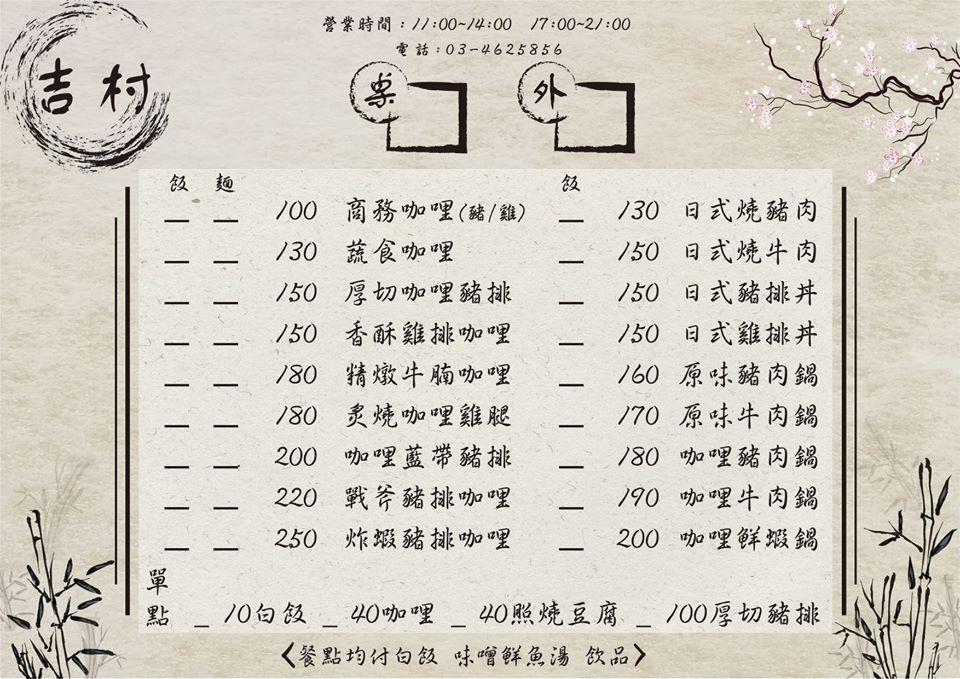 營業時間：11:00~14:00 17:00~21:00
電話：03-4625856
吉村
桌 外
飯 麵
_ _ 100 商務咖哩(豬/雞)
_ _ 130 蔬食咖哩
_ _ 150 厚切咖哩豬排
_ _ 150 香酥雞排咖哩
_ _ 180 精燉牛腩咖哩
_ _ 180 炙燒咖哩雞腿
_ _ 200 咖哩藍帶豬排
_ _ 220 戰斧豬排咖哩
_ _ 250 炸蝦豬排咖哩
飯
_ 130 日式燒豬肉
_ 150 日式燒牛肉
_ 150 日式豬排丼
_ 150 日式雞排丼
_ 160 原味豬肉鍋
_ 170 原味牛肉鍋
_ 180 咖哩豬肉鍋
_ 190 咖哩牛肉鍋
_ 200 咖哩鮮蝦鍋
單點 _ 10白飯 _ 40咖哩 _ 40照燒豆腐 _ 100厚切豬排
<餐點均付白飯 味噌鮮魚湯 飲品>